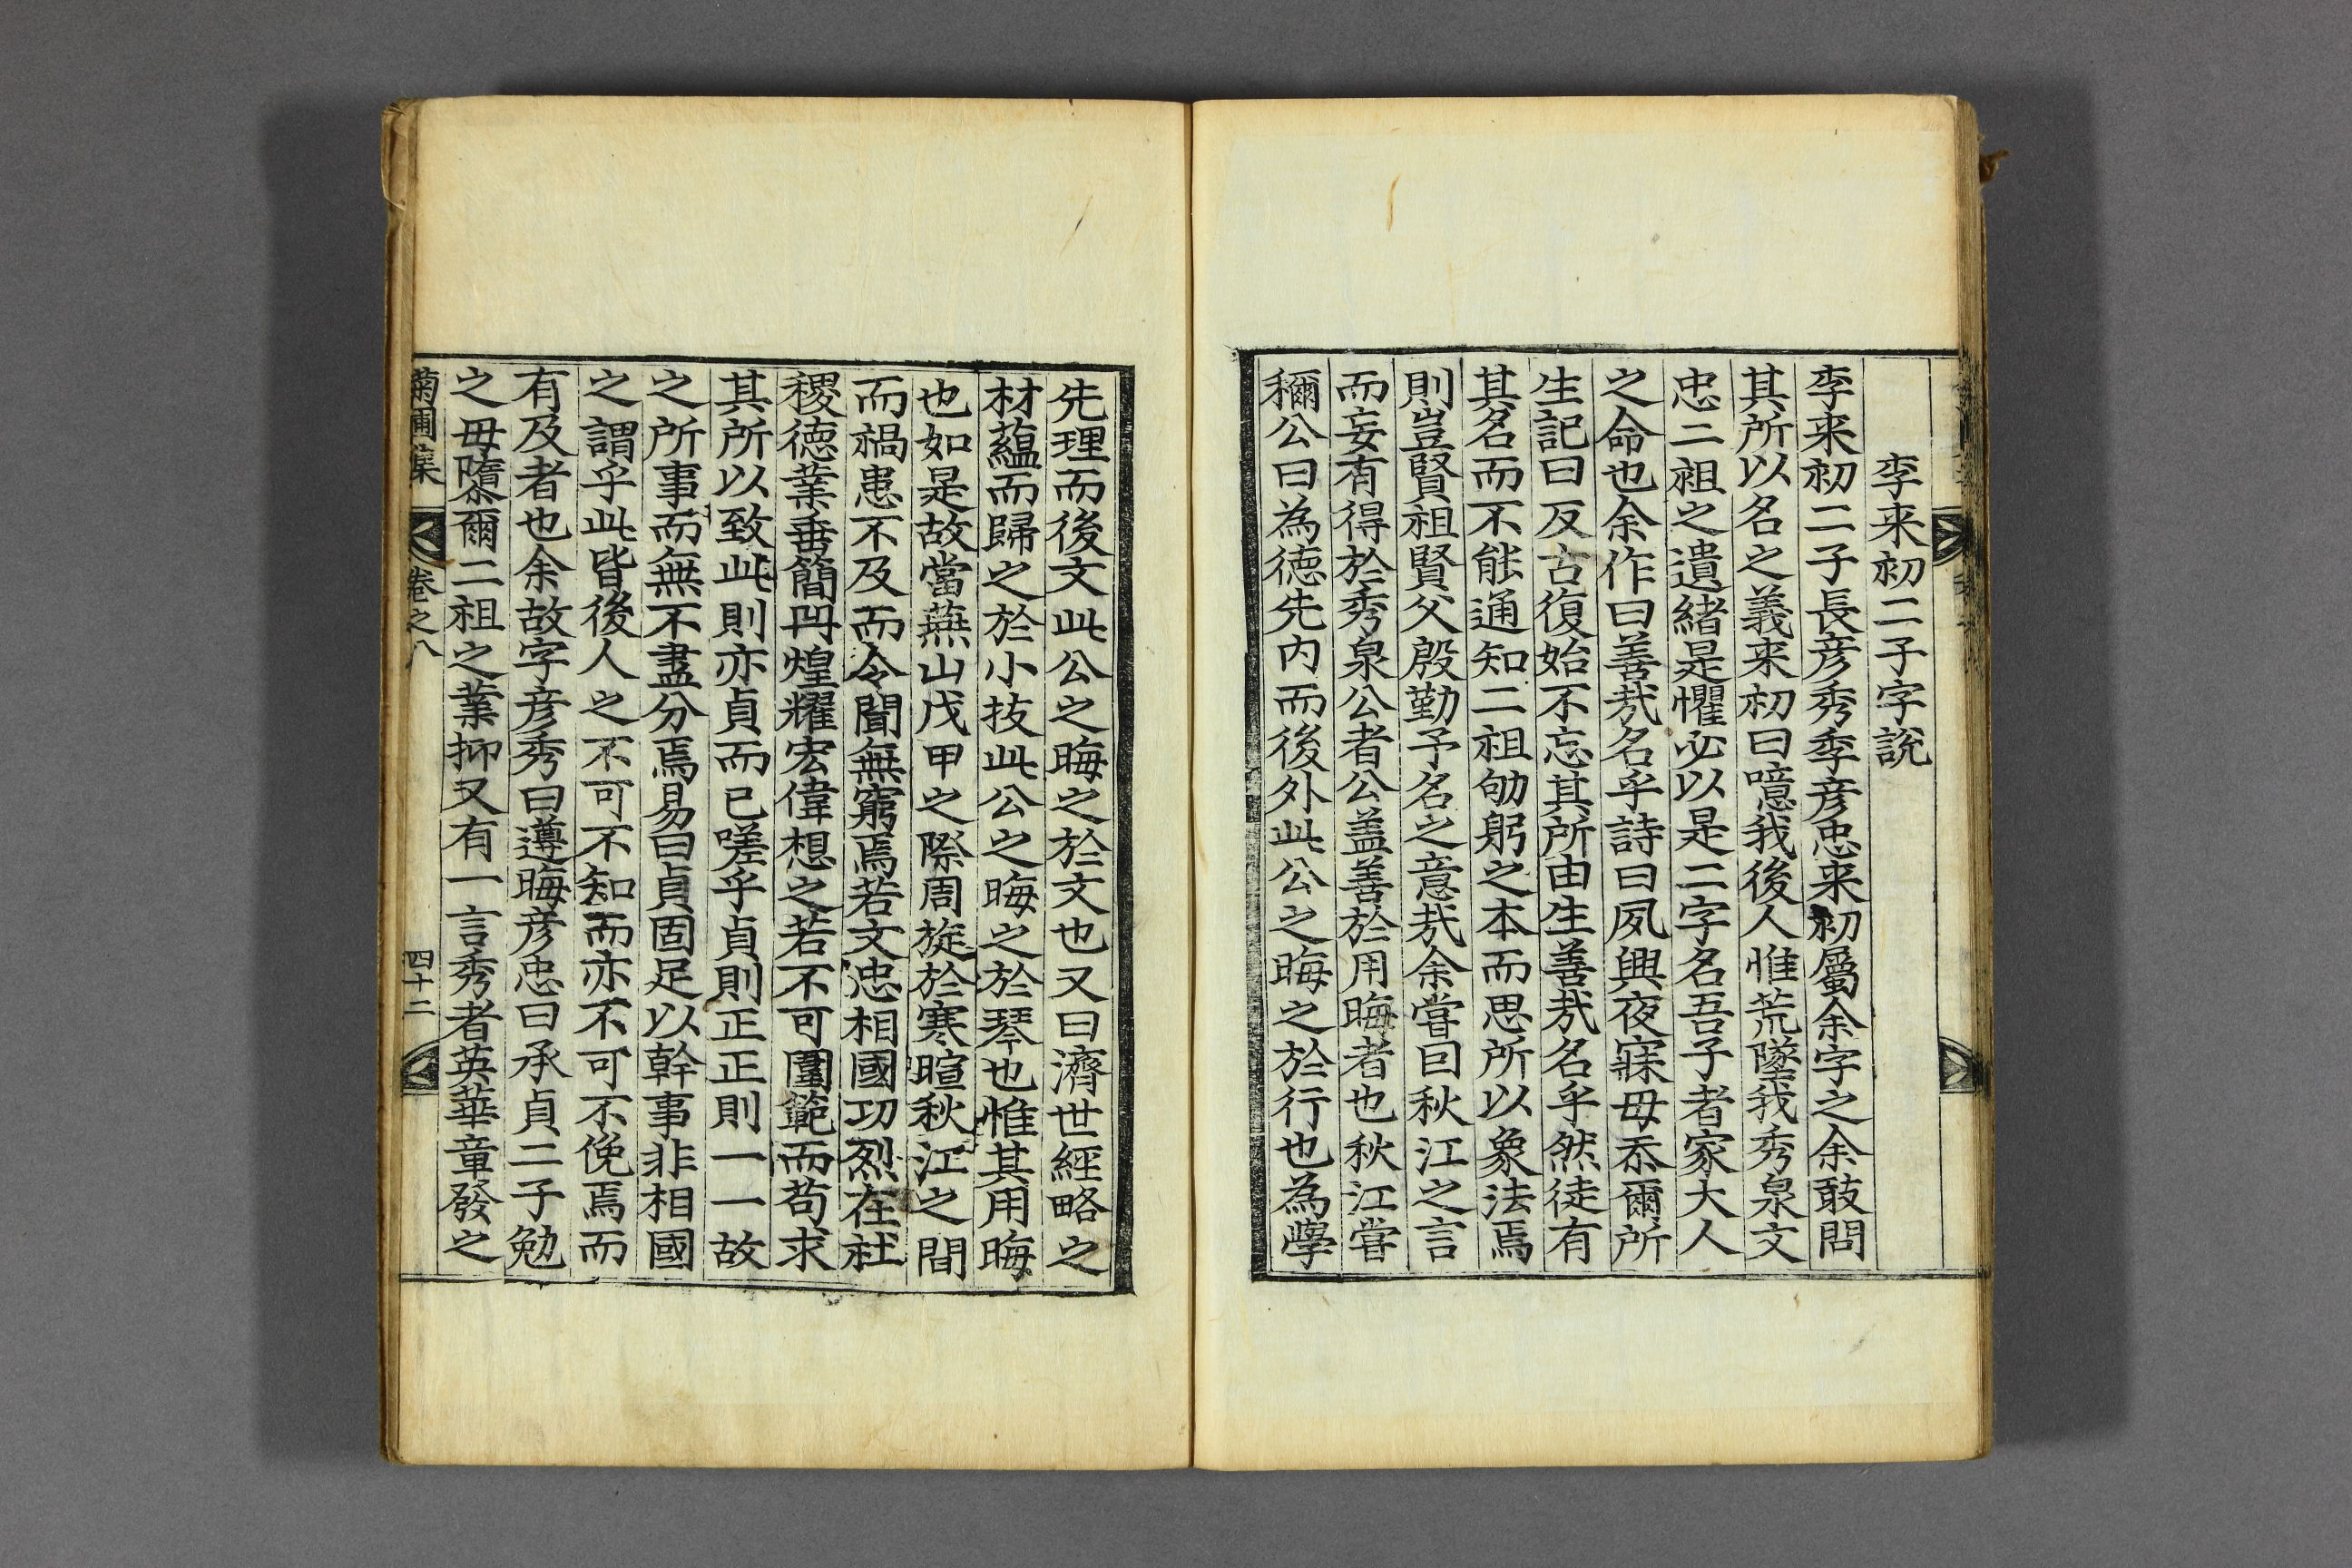 李来初二子字說
李来初二子長彦秀季彦忠来初屬余字之余敢問
其所以名之義来初曰噫我後人惟荒墜我秀泉文
忠二祖之遺緖是懼必以是二字名吾子者家大人
之命也余作曰善㢤名乎詩曰夙興夜寐毋忝爾所
生記曰反古復始不忘其所由生善㢤名乎然徒有
其名而不能通知二祖劬躬之本而思所以象法焉
則豈賢祖賢父殷勤予名之意㢤余嘗曰秋江之言
而妄有得於秀泉公者公盖善於用晦者也秋江嘗
穪公曰為徳先内而後外此公之晦之於行也為學
先理而後文此公之晦之於文也又曰濟世經略之
材蘊而歸之於小技此公之晦之於琴也惟其用晦
也如是故當蕪山戊甲之際周旋於寒暄秋江之間
而禍患不及而令聞無窮焉若文忠相國㓛烈在社
稷徳業垂簡冊煌耀宏偉想之若不可圍範而苟求
其所以致此則亦貞而已嗟乎貞則正正則一一故
之所事而無不盡分焉易曰貞固足以幹事非相國
之謂乎此皆後人之不可不知而亦不可不俛焉而
有及者也余故字彦秀曰遵晦彦忠曰承貞二子勉
之毋隳爾二祖之業抑又有一言秀者英華章發之
菊圃集 卷之八 四十二